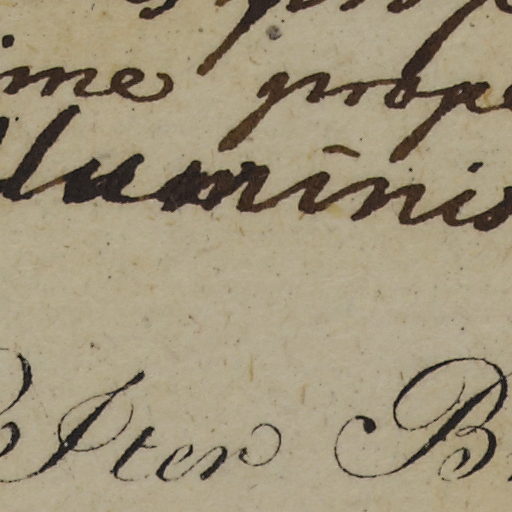 ime prope
luminis
Iter B